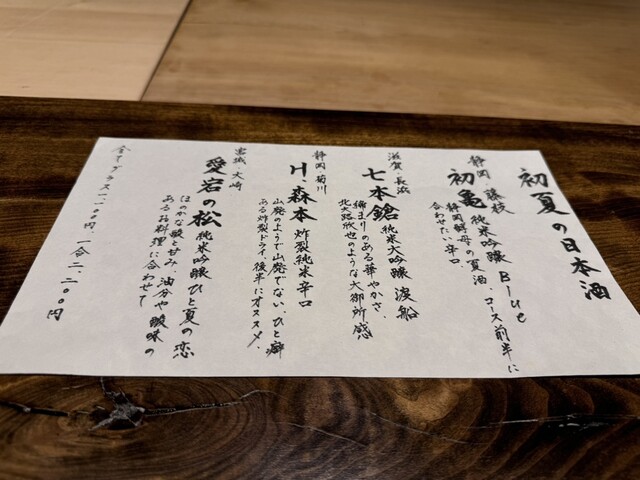 初夏の日本酒
静岡 藤枝
初亀 純米吟醸 Blue
静岡酵母の夏酒。コース前半に
合わせたい辛口
滋賀 長浜
七本鎗 純米大吟醸 渡船
締まりのある華やかさ、
北大路欣也のような大御所感
静岡 菊川
H.森本 炸裂純米辛口
山廃のようで山廃でない、ひと癖
ある炸裂ドライ、後半にオススメ。
宮城 大崎
愛宕の松 純米吟醸 ひと夏の恋
ほのかな酸と甘み、油分や酸味の
ある お料理に合わせて
全てグラス一二〇〇円 一合二二〇〇円